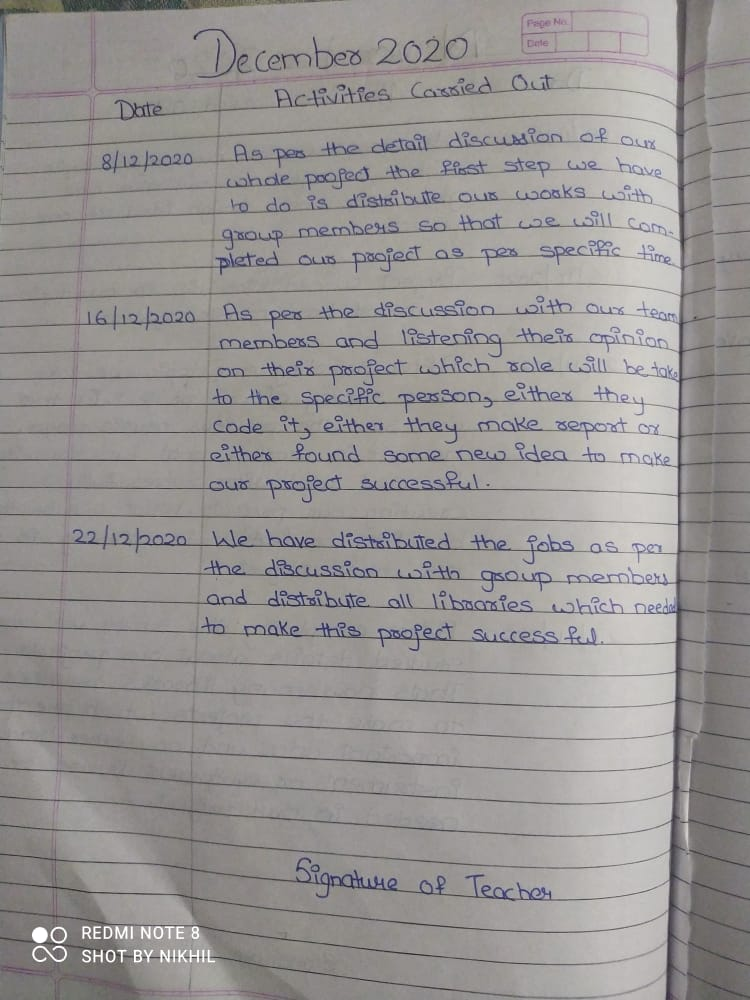 Page No.
Date
December 2020
Date Activities Carried Out
8/12/2020 As per the detail discussion of our
whole project the first step we have
to do is distribute our works with
group members so that we will com-
pleted our project as per specific time.
16/12/2020 As per the discussion with our team
members and listening their opinion
on their project which role will be take
to the specific person, either they
code it, either they make report or
either found some new idea to make
our project successful.
22/12/2020 We have distributed the jobs as per
the discussion with group members
and distribute all libraries which needed
to make this project successful.
Signature of Teacher
REDMI NOTE 8
SHOT BY NIKHIL